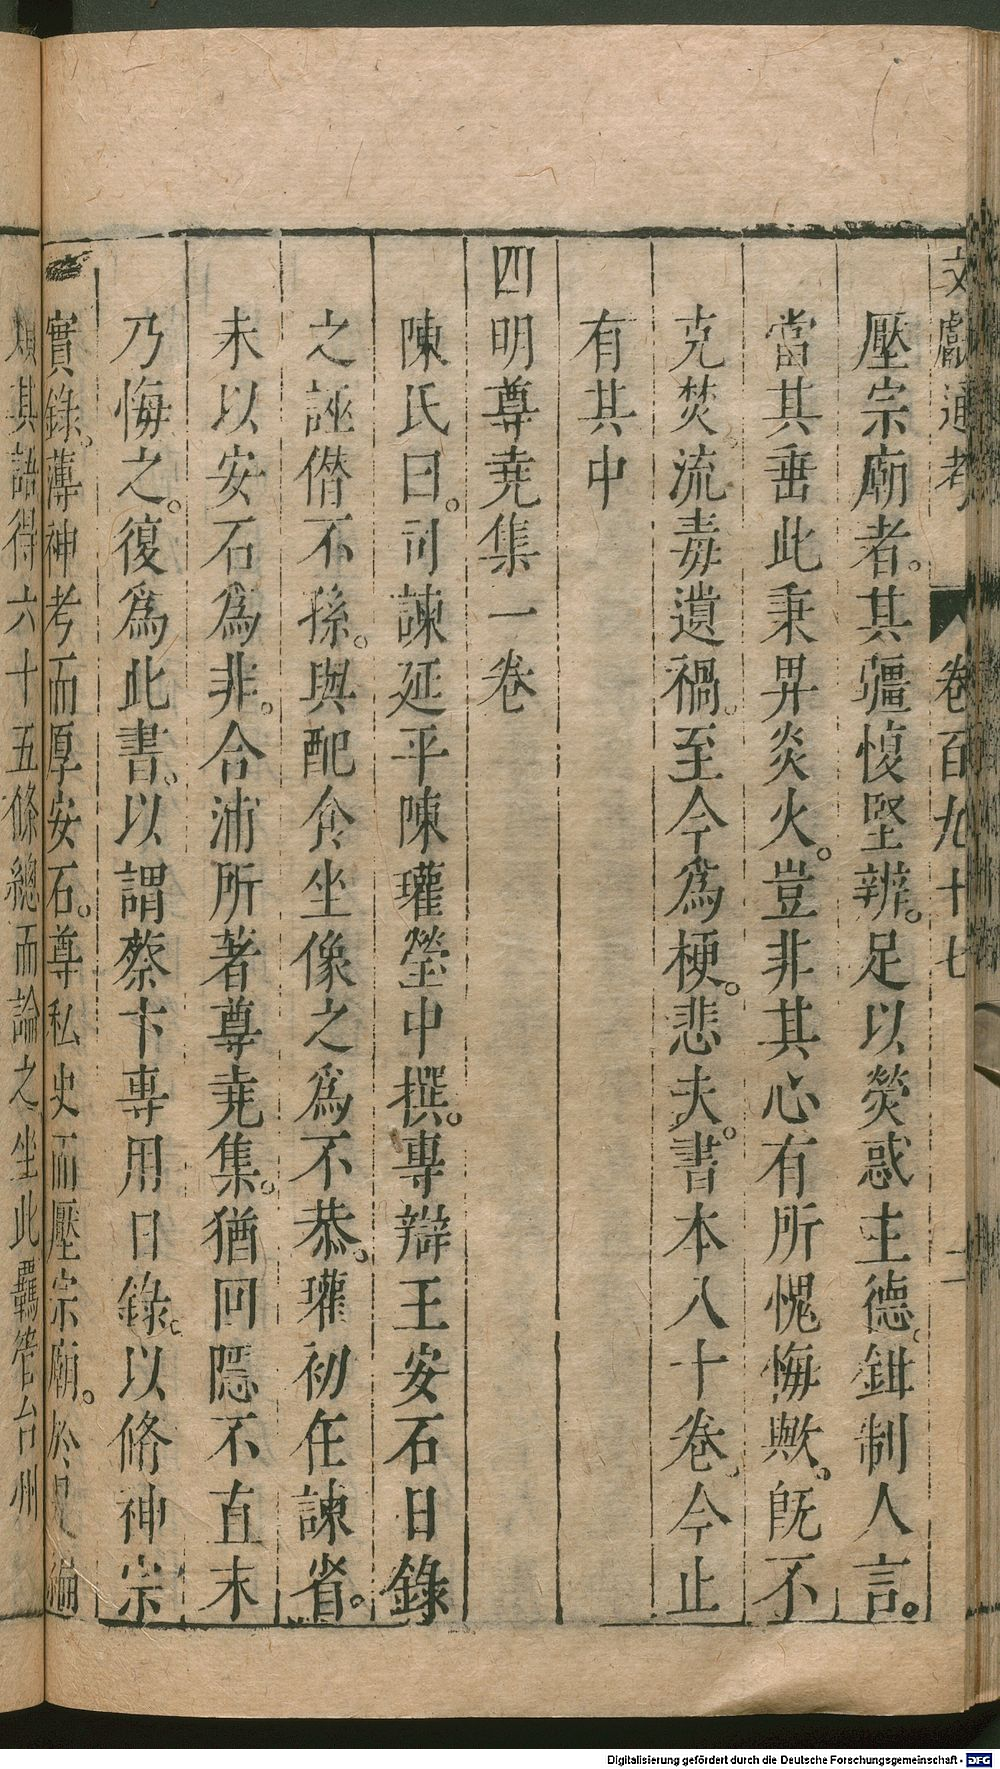 文獻通考 卷百九十七 二
壓宗廟者。其彊愎堅辨。足以熒惑主德。鉗制人言。
當其垂此秉畀炎火。豈非其心有所愧悔歟。旣不
克焚流毒遺禍。至今爲梗。悲夫。書本八十卷。今止
有其中
四明尊堯集一卷
陳氏曰。司諫延平陳瓘瑩中撰。專辯王安石日錄
之誣僭不孫。與配食坐像之爲不恭。瓘初在諫省。
未以安石爲非。合浦所著尊堯集。猶回隱不直末
乃悔之。復爲此書。以謂蔡卞專用日錄。以脩神宗
實錄。薄神考而厚安石。尊私史而壓宗廟。於是編
類其語得六十五條總而論之坐此羈管台州
Digitalisierung gefördert durch die Deutsche Forschungsgemeinschaft - DFG